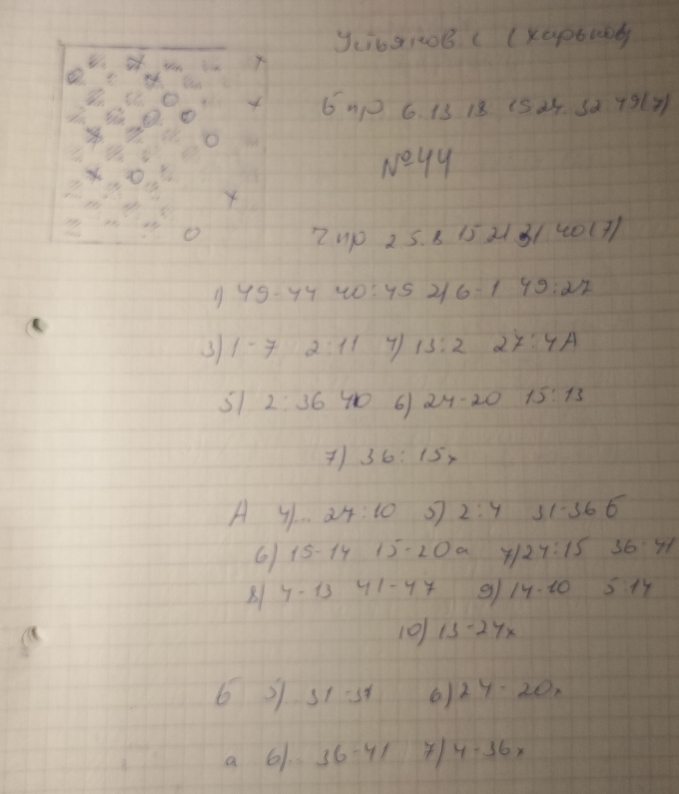 Устьянов. С (Харьков)
б пр 6. 13 18 19 24. 32 49 (7)
№44
Ч пр 2 5. 8 15 21 31 40 (7)
1) 49-44 40:49 2) 6-1 49:27
3) 1-7 2:11 4) 13:2 27:4 А
5) 2:36 40 6) 24-20 15:13
7) 36:15х
А 4).. 27:10 5) 2:4 31-36 б
6) 19-14 15-20 а 7) 24:15 36-41
8) 4-13 41-47 9) 14-10 5:14
10) 13-24х
б 5).. 31-37 6) 24-20х
а 6).. 36-41 7) 4-36х